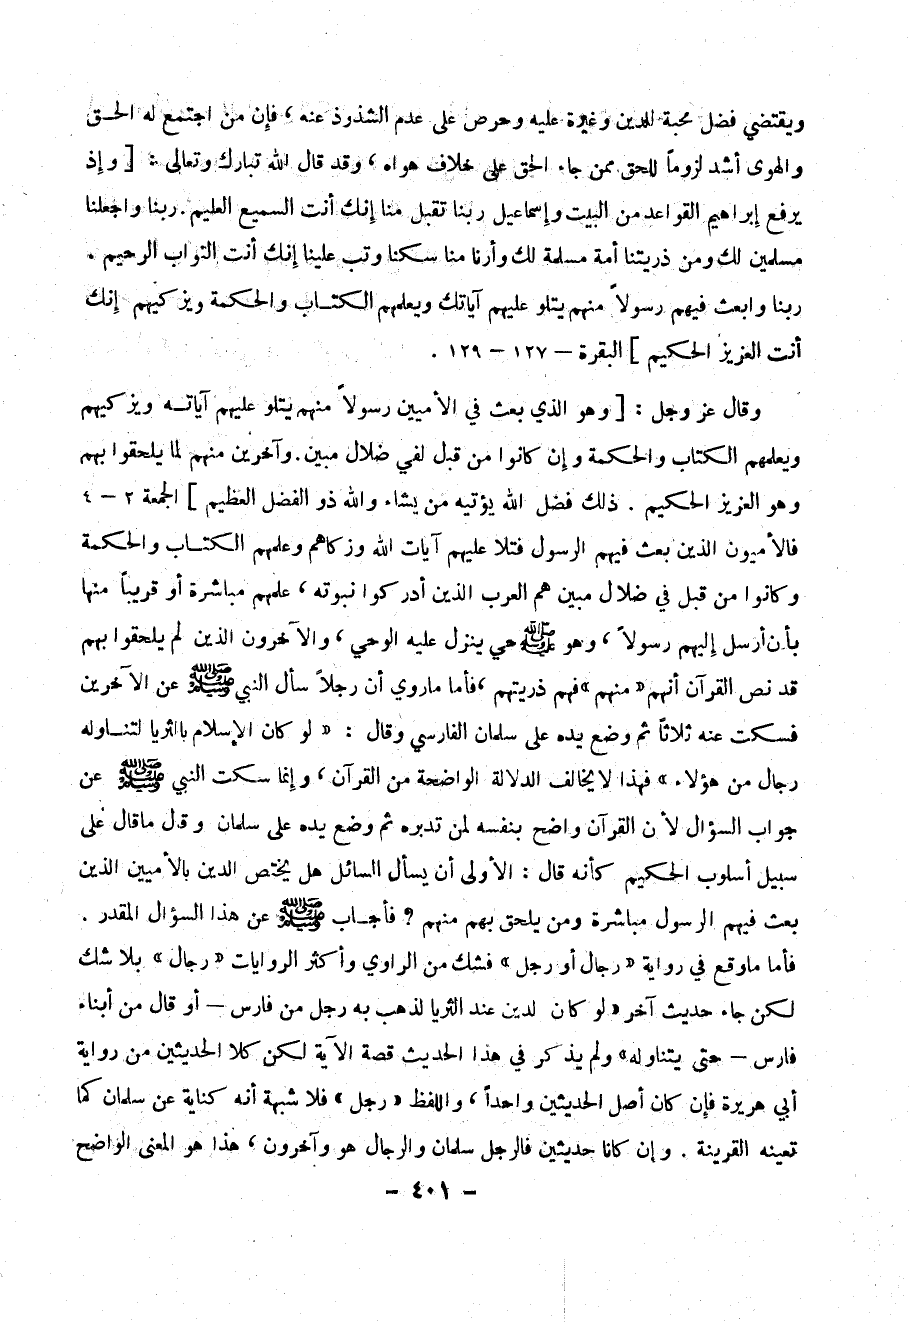 ويقتضي فضل محبة للدين وغيرة عليه وحرص على عدم الشذوذ عنه ، فإن من اجتمع له الحــق
والهوى أشد لزوماً للحق ممن جاء الحق على خلاف هواه ، وقد قال الله تبارك وتعالى : [ وإذ
يرفع إبراهيم القواعد من البيت وإسماعيل ربنا تقبل منا إنك أنت السميع العليم . ربنا واجعلنا
مسلمين لك ومن ذريتنا أمة مسلمة لك وأرنا مناسكنا وتب علينا إنك أنت التواب الرحيم .
ربنا وابعث فيهم رسولاً منهم يتلو عليهم آياتك ويعلمهم الكتــاب والحكمة ويزكيهم إنك
أنت العزيز الحكيم ] البقرة – ١٢٧ – ١٢٩ .
وقال عز وجل : [ وهو الذي بعث في الأميين رسولاً منهم يتلو عليهم آياتــه ويزكيهم
ويعلمهم الكتاب والحكمة وإن كانوا من قبل لفي ضلال مبين . وآخرين منهم لما يلحقوا بهم
وهو العزيز الحكيم . ذلك فضل الله يؤتيه من يشاء والله ذو الفضل العظيم ] الجمعة ٢ – ٤
فالأميون الذين بعث فيهم الرسول فتلا عليهم آيات الله وزكاهم وعلمهم الكتــاب والحكمة
وكانوا من قبل في ضلال مبين هم العرب الذين أدركوا نبوته ، علمهم مباشرة أو قريباً منها
بأن أرسل إليهم رسولاً ، وهو ﷺ حي ينزل عليه الوحي ، والآخرون الذين لم يلحقوا بهم
قد نص القرآن أنهم « منهم » فهم ذريتهم ، فأما ماروي أن رجلاً سأل النبي ﷺ عن الآخرين
فسكت عنه ثلاثاً ثم وضع يده على سلمان الفارسي وقال : « لو كان الإسلام بالثريا لتنــاوله
رجال من هؤلاء » فهذا لا يخالف الدلالة الواضحة من القرآن ، وإنما سكت النبي ﷺ عن
جواب السؤال لأن القرآن واضح بنفسه لمن تدبره ثم وضع يده على سلمان وقال ماقال على
سبيل أسلوب الحكيم كأنه قال : الأولى أن يسأل السائل هل يختص الدين بالأميين الذين
بعث فيهم الرسول مباشرة ومن يلحق بهم منهم ? فأجــاب ﷺ عن هذا السؤال المقدر .
فأما ماوقع في رواية « رجال أو رجل » فشك من الراوي وأكثر الروايات « رجال » بلا شك
لكن جاء حديث آخر « لو كان لدين عند الثريا لذهب به رجل من فارس – أو قال من أبناء
فارس – حتى يتناوله» ولم يذكر في هذا الحديث قصة الآية لكن كلا الحديثين من رواية
أبي هريرة فإن كان أصل الحديثين واحداً ، واللفظ « رجل » فلا شبهة أنه كناية عن سلمان كما
تعينه القرينة . وإن كانا حديثين فالرجل سلمان والرجال هو وآخرون ، هذا هو المعنى الواضح
– ٤٠١ –